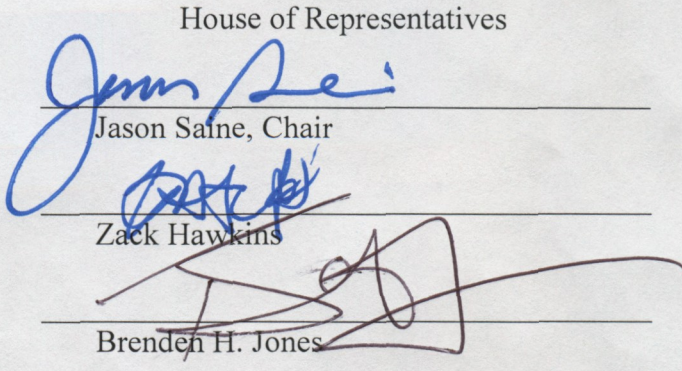 House of Representatives
Jason Saine, Chair
Zack Hawkins
Brenden H. Jones